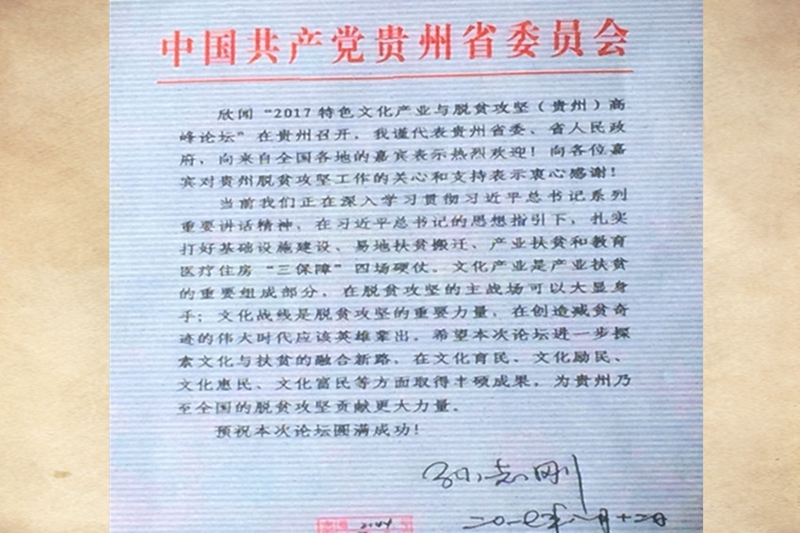 中国共产党贵州省委员会
欣闻“2017特色文化产业与脱贫攻坚（贵州）高
峰论坛”在贵州召开，我谨代表贵州省委、省人民政
府，向来自全国各地的嘉宾表示热烈欢迎！向各位嘉
宾对贵州脱贫攻坚工作的关心和支持表示衷心感谢！
当前我们正在深入学习贯彻习近平总书记系列
重要讲话精神，在习近平总书记的思想指引下，扎实
打好基础设施建设、易地扶贫搬迁、产业扶贫和教育
医疗住房“三保障”四场硬仗。文化产业是产业扶贫
的重要组成部分，在脱贫攻坚的主战场可以大显身
手；文化战线是脱贫攻坚的重要力量，在创造减贫奇
迹的伟大时代应该英雄辈出。希望本次论坛进一步探
索文化与扶贫的融合新路，在文化育民、文化励民、
文化惠民、文化富民等方面取得丰硕成果，为贵州乃
至全国的脱贫攻坚贡献更大力量。
预祝本次论坛圆满成功！
孙志刚
二〇一七年八月十二日